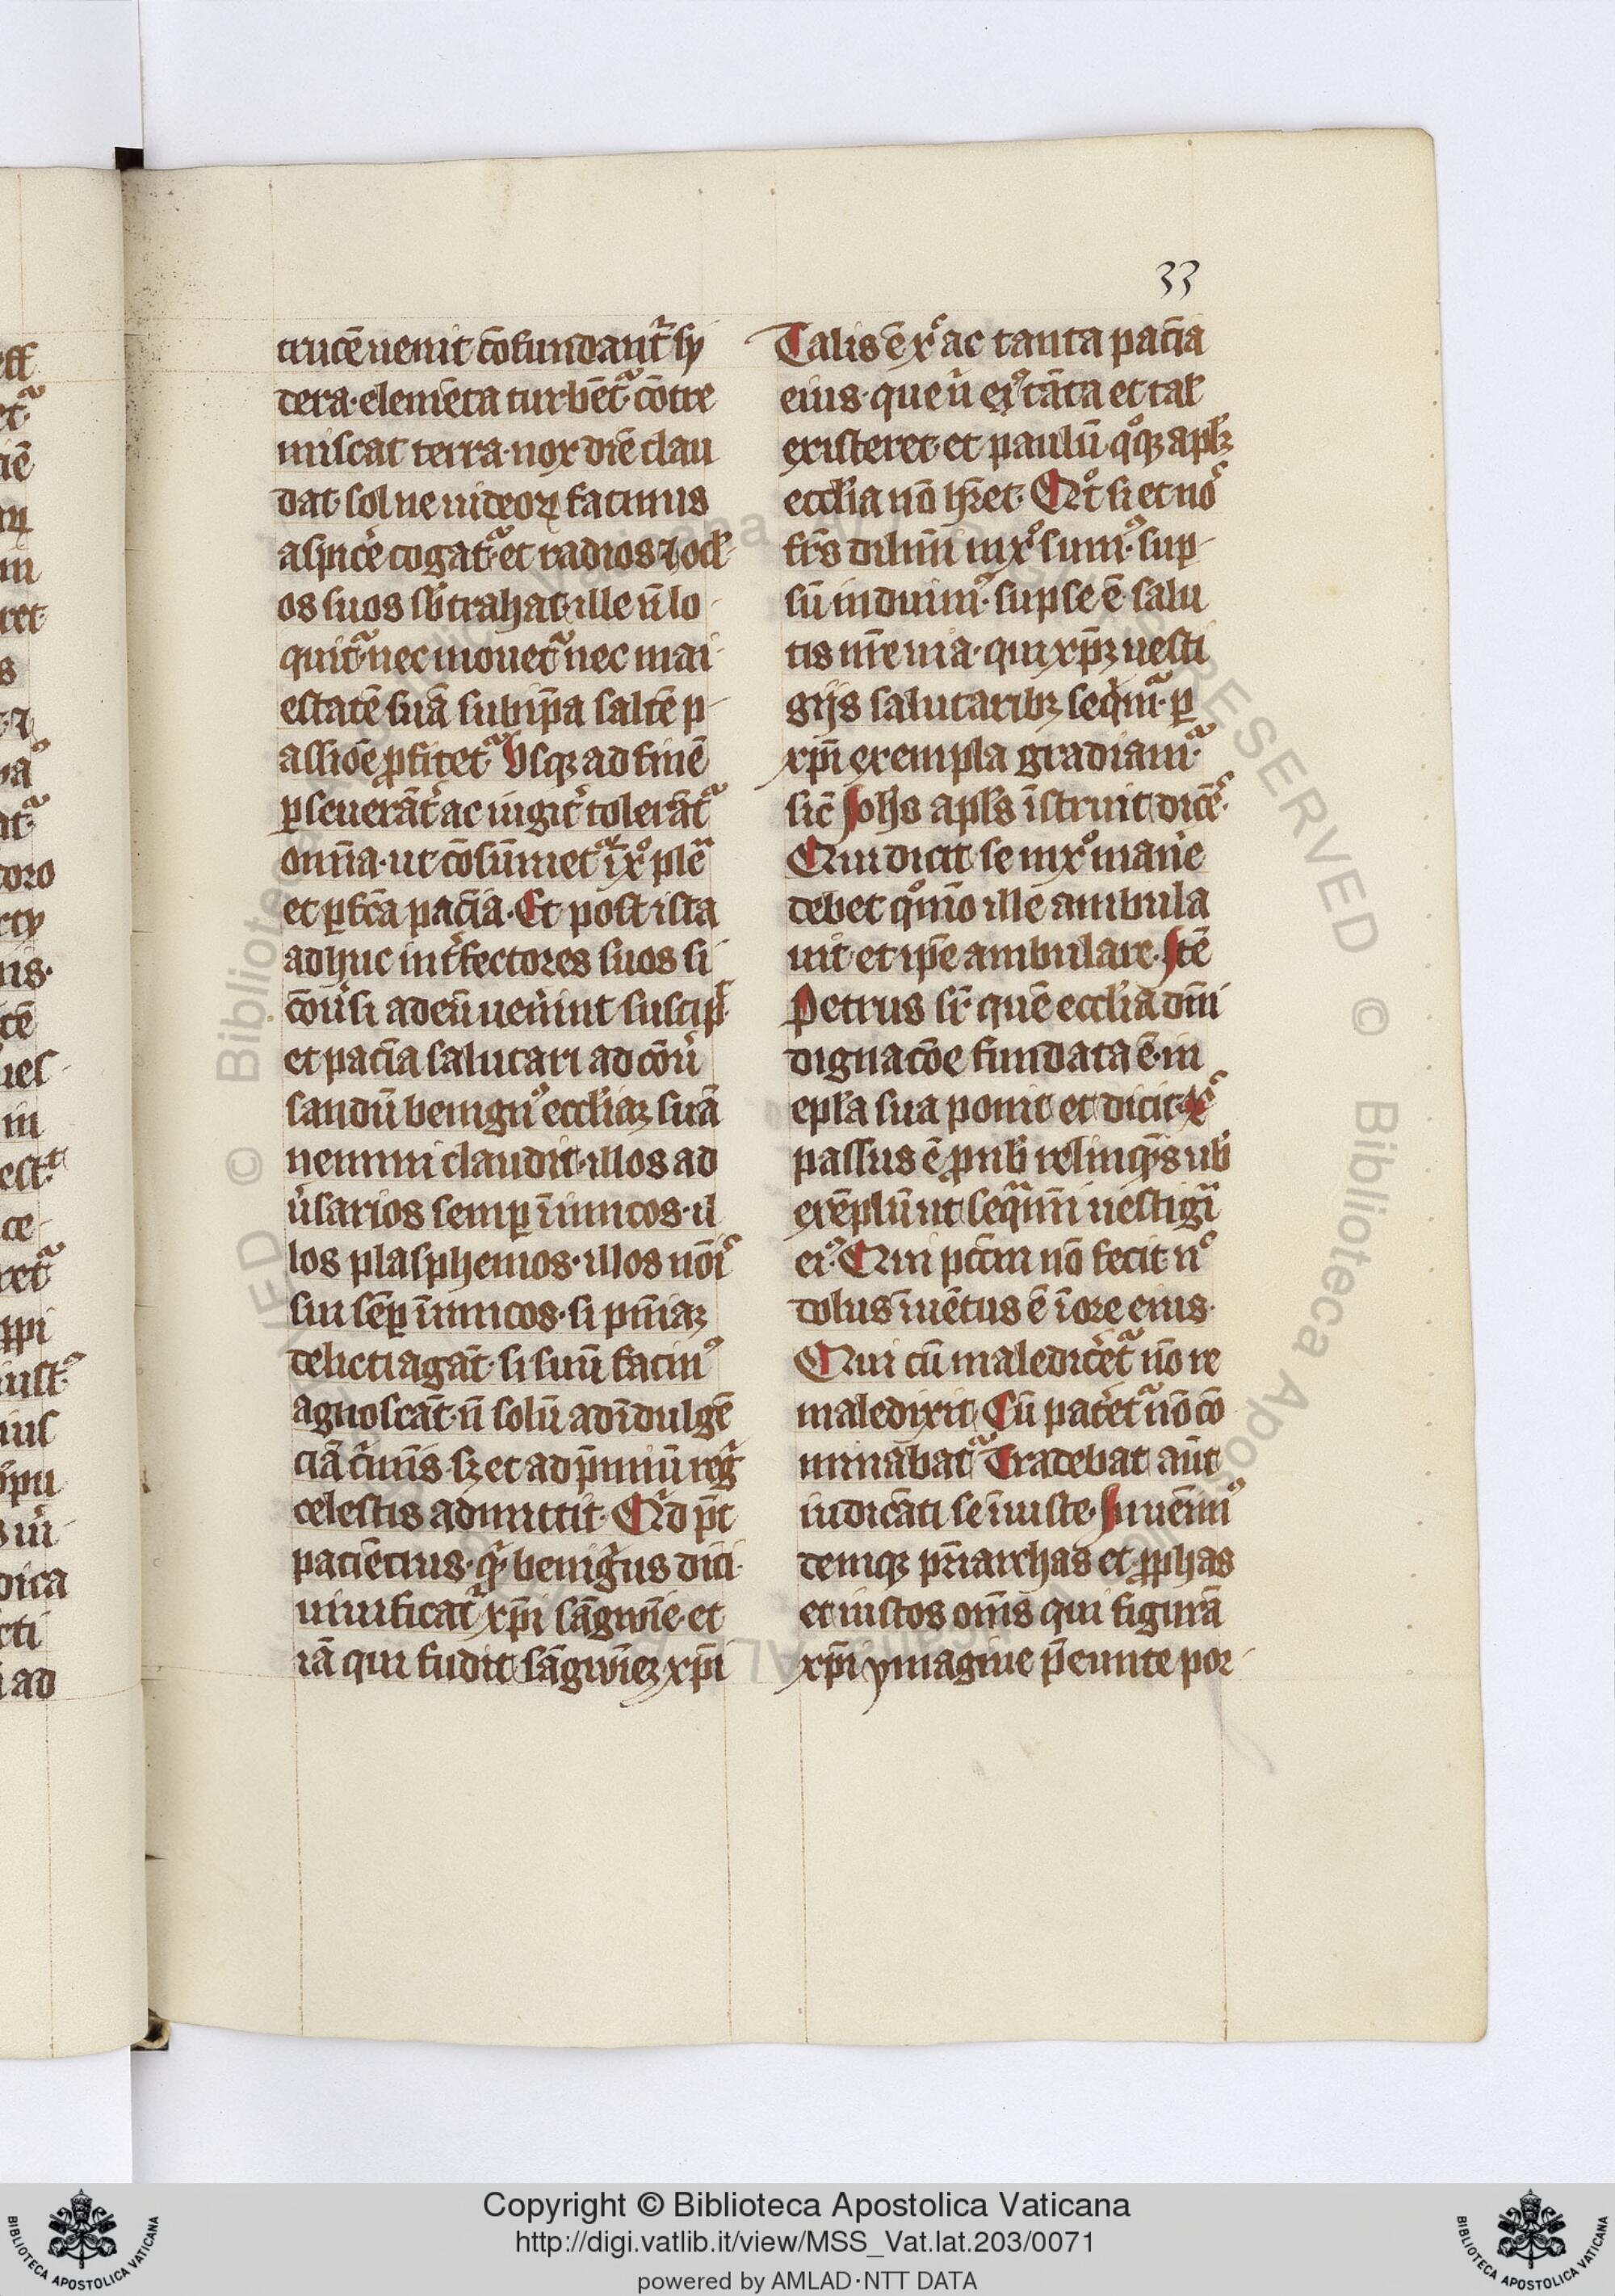 33
crucē uenit cōfundant᷑ sy
dera· elemēta turbēt᷑· cōtre
miscat terra· nox diē clau
dat· sol ne iudeoꝝ facinus
aspicͤe cogat᷑· et radios ⁊ ocl̓
os suos sb̓trahat· ille n̄ lo
quit᷑ nec mouet᷑ nec mai
estatē suā sub ip̄a saltē p
assiōe ꝓfitet᷑ Vsqꝫ ad finē
ꝑseuerāt᷑ ac iugit᷑ tolerāt᷑
omīa· ut cōsūmet᷑ ī xͦ plēa
et ꝑfc̄a pac̄ia· Et post ista
adhuc int᷑fectores suos si
cōu᷑si ad eū uen᷑int suscip̄
et pac̄ia salutari ad cōu᷑
sandū benignꝰ eccl̓iaꝫ suā
nemini claudit· illos ad
u᷑sarios semꝑ īimicos· il
los plasphemos· illos nōi᷑s
sui sēꝑ īimicos· si pn̄iaꝫ
delicti agāt· si suū facinꝰ
agnoscāt· n̄ solū ad īdulgē
ciā c᷑imīs· sꝫ et ad p̄miū reg᷑
celestis admittit· Qⁱd pt̄
paciēcius· qͥd benig᷑us dici·
uiuificat᷑ xp̄i sāgwīe· et
iā qui fudit sāgwīeꝫ xp̄i
Talis ē xͦ ac tanta pac̄ia
eius· que n̄ eiꝰ tāta et tal̓
existeret· et paulū qͦqꝫ apl̓ꝫ
eccl̓ia nō hr̄et· Qͦt si et noˢ
fr̄s dil̄mi in xͦ sumꝰ· si ip
sū induimꝰ· si ip̄se ē salu
tis nr̄e uia· qui xp̄ꝫ uesti
gijs salutaribꝫ seqͥm᷑· ꝑ
xp̄i exempla gradiam᷑·
sic̄ Joh̄s apl̓s īstruit dicēˢ·
Qui dicit se in xͦ man᷑e
debet qͦmō ille ambula
uit· et ip̄e ambulare· Itē
Petrus sr̄ quē eccl̓ia dn̄i
dignacōe fundata ē· in
epl̓a sua ponit et dicit· Xˢ
passus ē ꝓ nob̓ relinqͣs ub̓
exēplū ut seqͣmī uestigia
eiꝰ· Qui pc̄c̄m nō fecit nᶜ
dolus īuētus ē ī ore eius·
Qui cū maledic᷑et᷑ nō re
maledixit Cū pat᷑et᷑ nō cō
minabat᷑ Tradebat aūt
iudicāti se īiuste· Inuēimꝰ
deniqꝫ pr̄iarchas et ꝓphas
et iustos om̄s qui figurā
xp̄i ymagine p̄eunte por
Copyright © Biblioteca Apostolica Vaticana
http://digi.vatlib.it/view/MSS_Vat.lat.203/0071
powered by AMLAD·NTT DATA